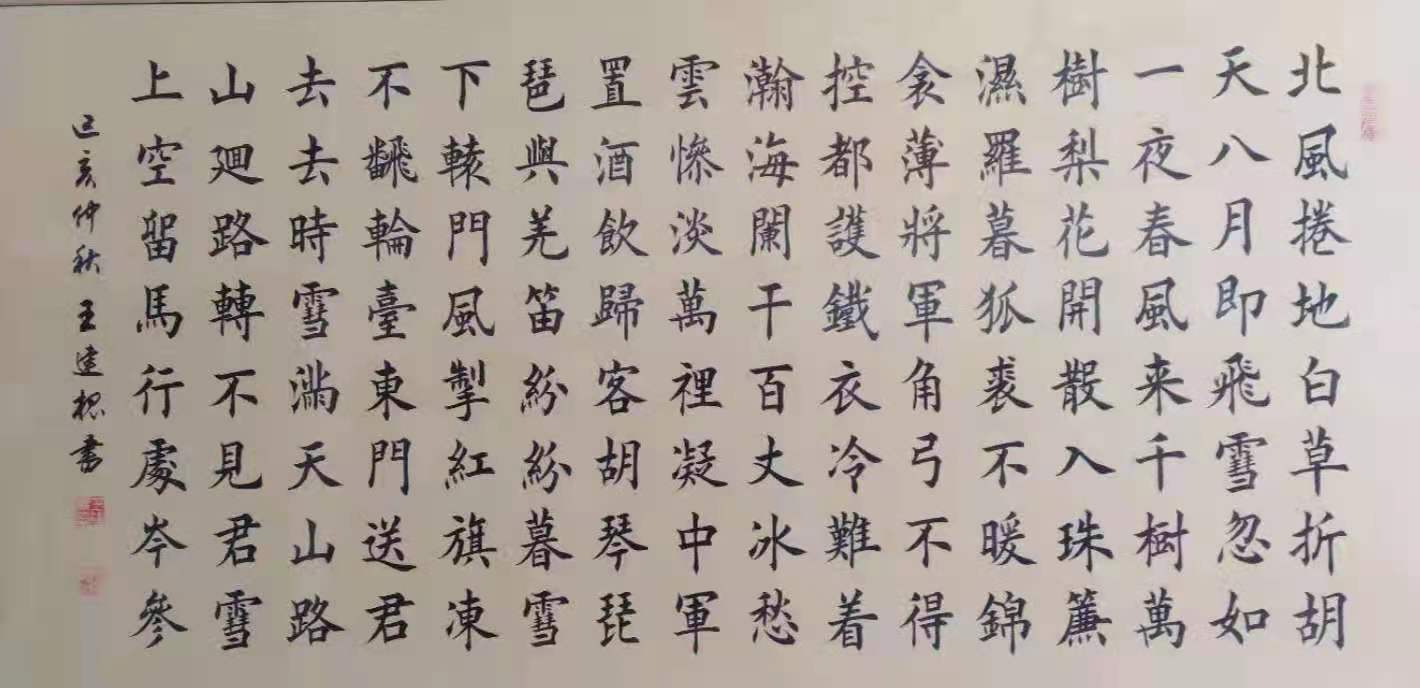 北風捲地白草折胡
天八月即飛雪忽如
一夜春風来千樹萬
樹梨花開散入珠簾
濕羅暮狐裘不暖錦
衾薄將軍角弓不得
控都護鐵衣冷難着
瀚海闌干百丈冰愁
雲慘淡萬裡凝中軍
置酒飲歸客胡琴琵
琶與羌笛紛紛暮雪
下轅門風掣紅旗凍
不飜輪臺東門送君
去去時雪滿天山路
山廻路轉不見君雪
上空留馬行處岑參
己亥仲秋王建枢書